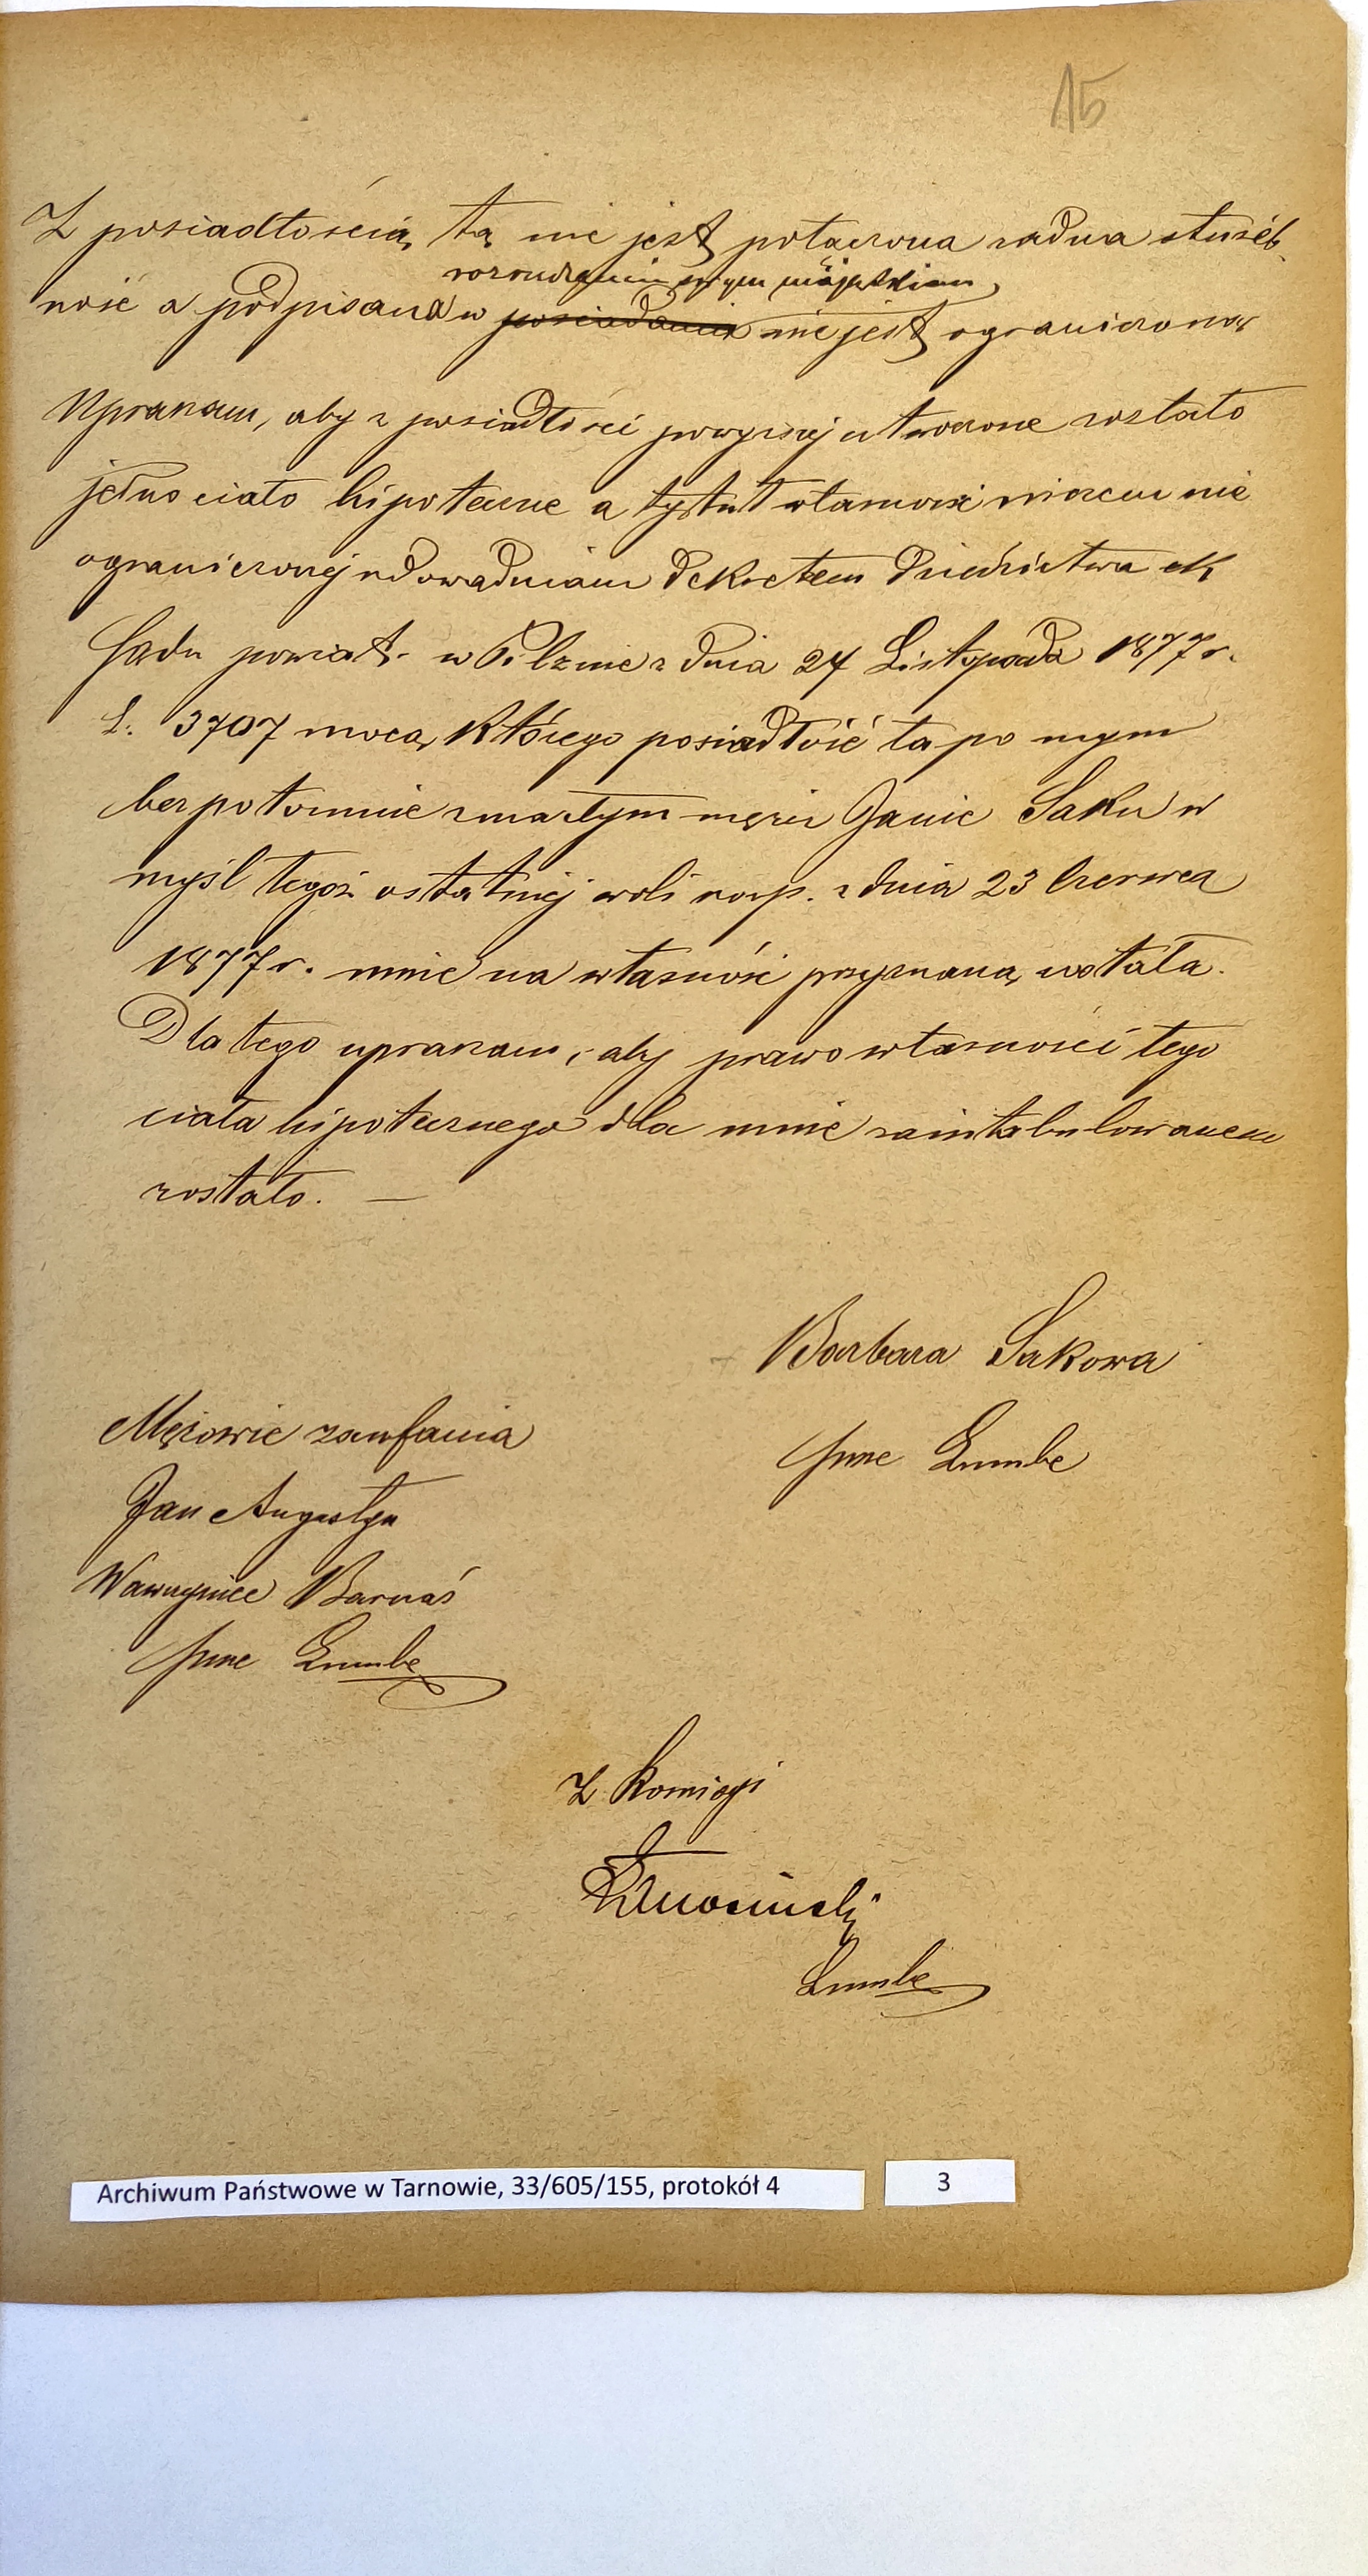 15
Z posiadłością tą nie jest połączona żadna służeb
rozrządzaniu swym majątkiem
ność a podpisana w posiadaniu nie jest ograniczoną
Upraszam, aby z posiadłości powyższej utworzone zostało
jedno ciało hipoteczne a tytuł własności niczem nie
ograniczonej udowadniam dekretem dziedzictwa ck
Sądu powiat. w Pilznie z dnia 24 Listopada 1877 r.
L. 3707 mocą którego posiadłość ta po mym
bezpotomnie zmarłym mężu Janie Saku w
myśl tegoż ostatniej woli rozp. z dnia 23 Czerwca
1877 r. mnie na własność przyznaną została.
Dla tego upraszam, aby prawo własności tego
ciała hipotecznego dla mnie zaintabulowanem
zostało. —
Barbara Sakowa
Mężowie zaufania
Jan Augustyn
Wawrzyniec Barnaś
Z Komisyi
Archiwum Państwowe w Tarnowie, 33/605/155, protokół 4
3